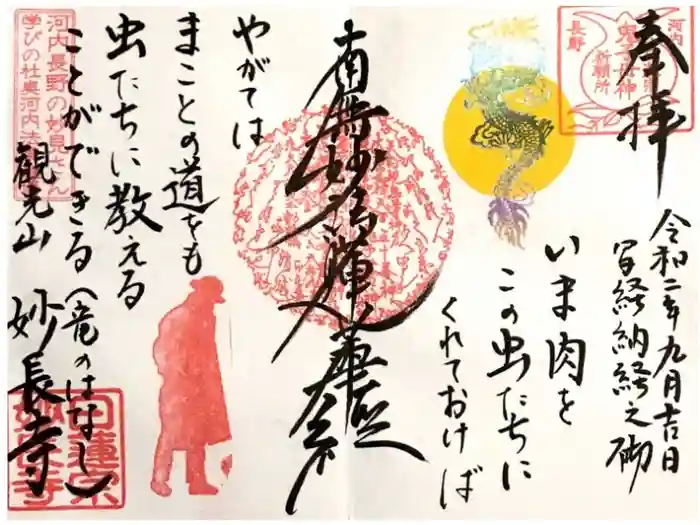 奉拝
令和二年九月吉日
写経納経之砌
河内
長野
鬼子母神
祈願所
いま肉を
この虫たちに
くれておけば
南無妙法蓮華経
やがては
まことの道をも
虫たちに教える
ことができる(竜のはなし)
観光山 妙長寺
河内長野の妙見さん
学びの杜奥河内
日蓮宗
妙長寺